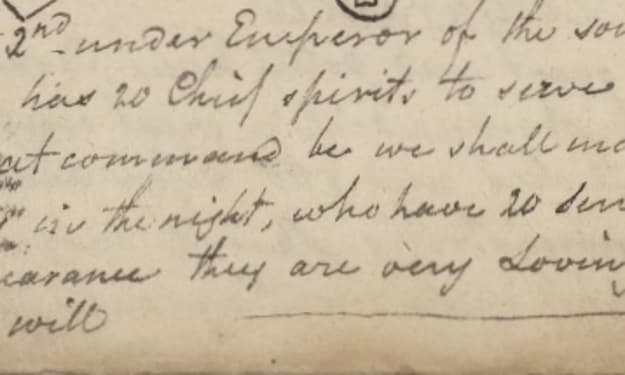 2nd under Emperor of the sou
has 20 Chief spirits to serve
at command be we shall ma
in the night, who have 20 ser
earance they are very Loving
will